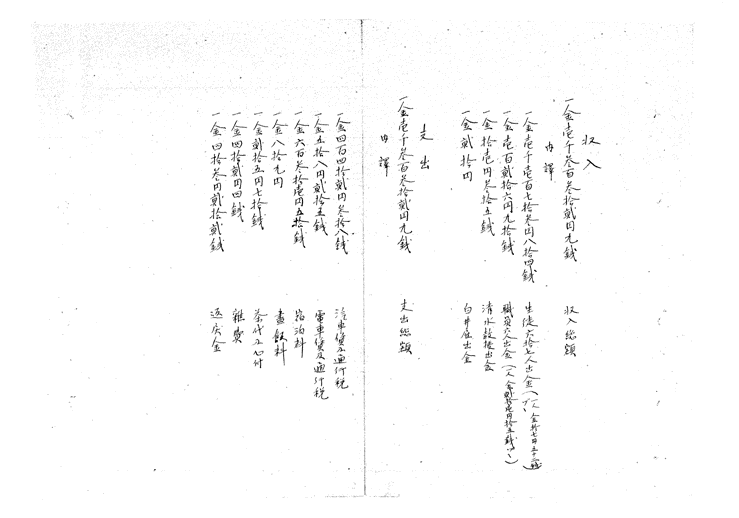 収入
一金壱千参百参拾弐円九銭 収入総額
内譯
一金壱千壱百七拾参円八拾四銭 生徒六拾七人出金(一人金拾七円五十二銭ヅヽ)
一金壱百弐拾六円九拾銭 職員六人出金(一人金弐拾壱円拾五銭ヅヽ)
一金拾壱円参拾五銭 清水校長出金
一金弐拾円 白井屋出金
支出
一金壱千参百参拾弐円九銭 支出総額
内譯
一金四百四拾弐円参拾八銭 汽車賃及通行税
一金五拾八円弐拾五銭 電車賃及通行税
一金六百参拾壱円五拾銭 宿泊料
一金八拾九円 昼飯料
一金弐拾五円七拾銭 茶代及心付
一金四拾弐円四銭 雑費
一金四拾参円弐拾弐銭 返戻金